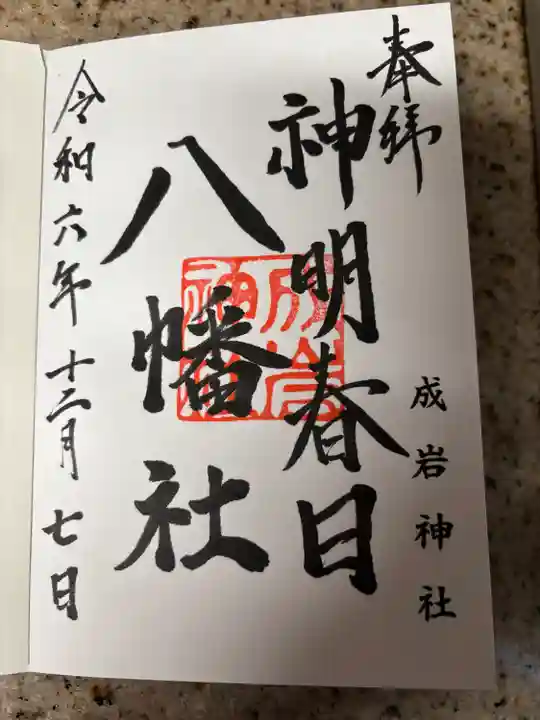 奉拝
成岩神社
神明春日
八幡社
令和六年十二月七日
成岩
神社